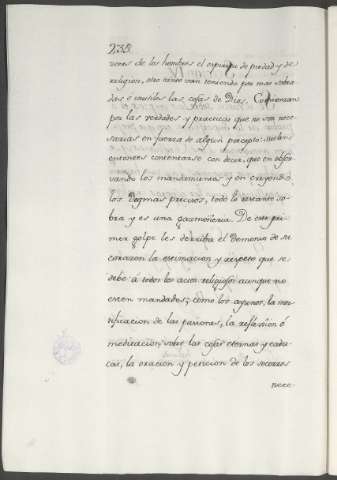 238
rones de los hombres el espiritu de piedad y de
religion, otro tanto van teniendo por mas sobra
das é inutiles las cosas de Dios. Comienzan
por las verdades y practicas que no son nece-
sarias en fuerza de algun precepto: suelen
entonces contentarse con decir, que en obser
vando los mandamientos y en creyendo
los Dogmas precisos, todo lo restante so-
bra y es una gazmoñeria. De este pri-
mer golpe les derriba el Demonio de su
corazon la estimacion y respeto que se
debe á todos los actos religiosos aunque no
esten mandados; como los ayunos, la mor
tificacion de las pasiones, la reflexîon ó
meditacion sobre las cosas eternas y cadu-
cas, la oracion y peticion de los socorros
nece-